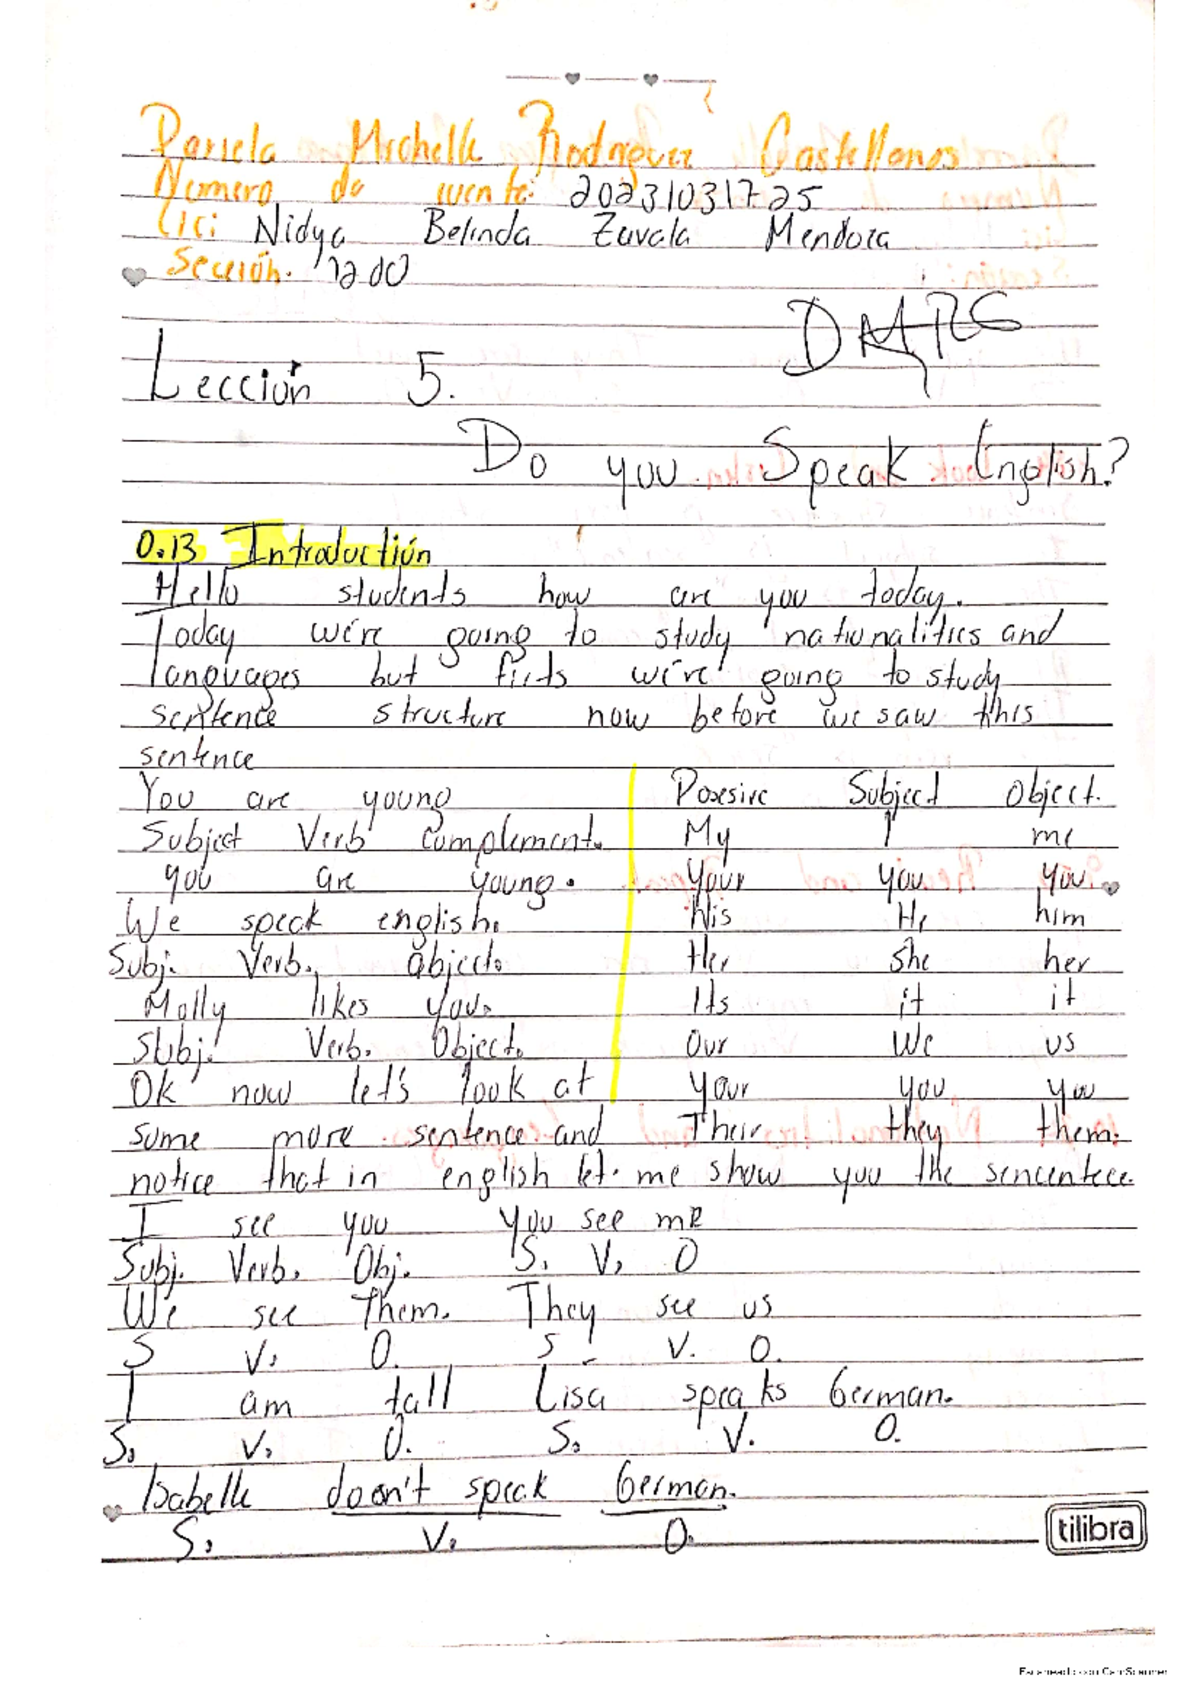 Daniela Michelle Rodriguez Castellanos
Numero de cuenta: 20231031725
Lici Nidya Belinda Zuvala Mendoza
Sección. 1200
DMRC
Lección 5.
Do you Speak English?
0.13 Introductión
Hello students how are you today.
Today we're going to study nationalities and
languages but firts we're going to study
sentence structure now before we saw this
sentence
You are young Posesive Subject Object.
Subject Verb complement. My I me
you are young. Your you you
We speak english. His He him
Subj. Verb. object. Her she her
Molly likes you. Its it it
Subj. Verb. Object. Our We us
Ok now let's look at your you you
some more sentence and Their they them.
notice that in english let me show you the sencentece.
I see you You see me
Subj. Verb. Obj. S. V. O
We see Them. They see us
S V. O. S V. O.
I am tall Lisa speaks German.
S. V. O. S. V. O.
Isabelle doon't speak German.
S. V. O.
tilibra
Escaneado con CamScanner